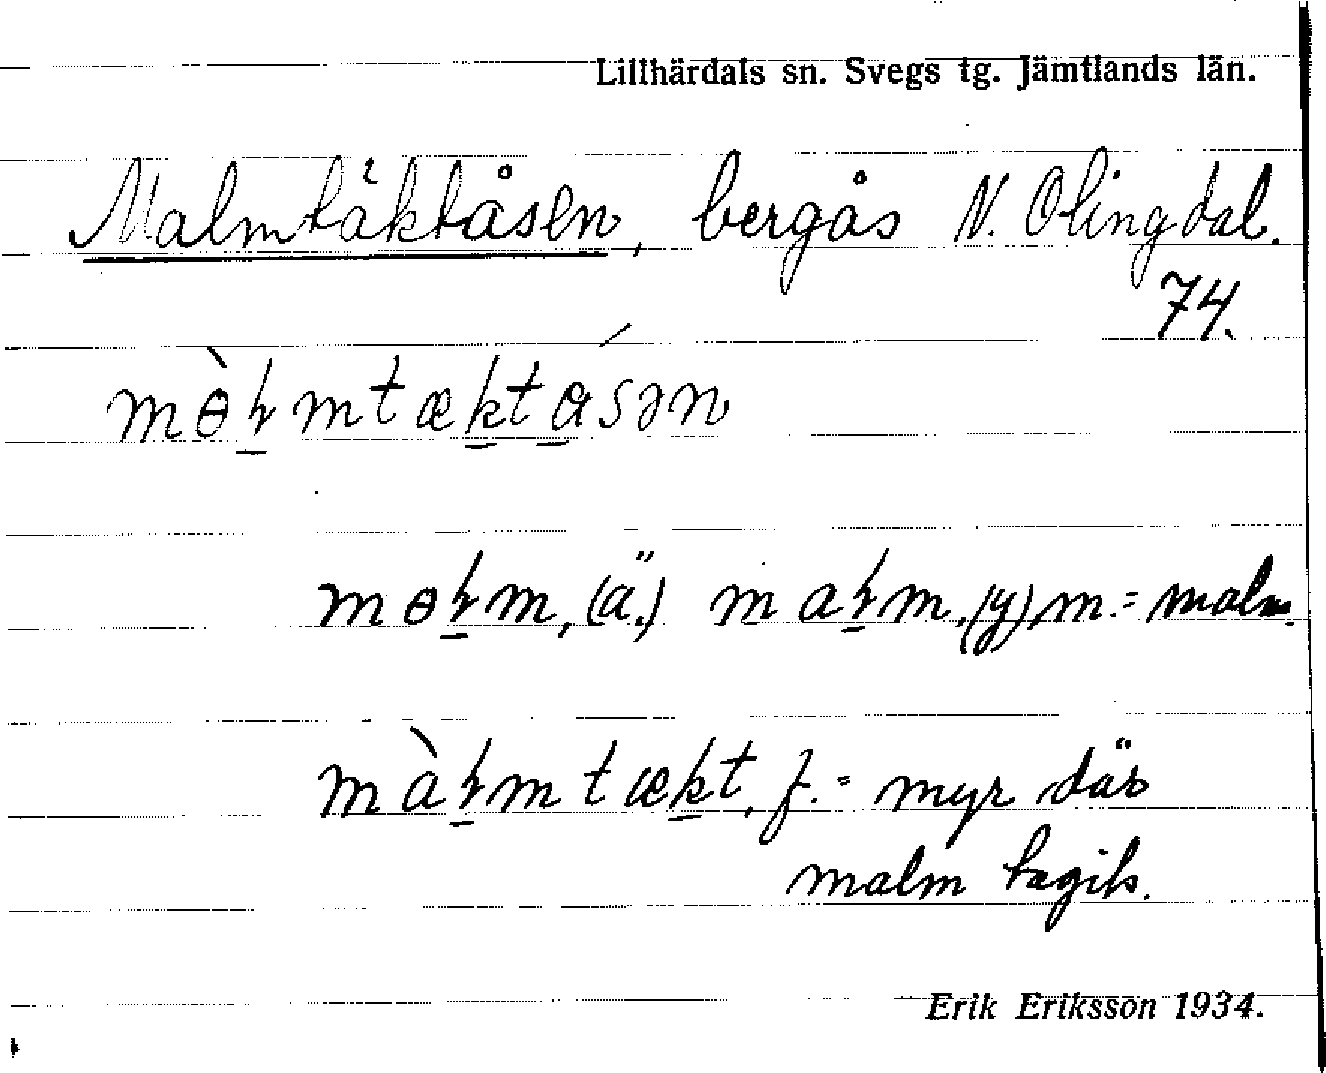 Lillhärdals sn. Svegs tg. Jämtlands län.
Malmtäktåsen, bergås N. Olingdal.
74.
mɵ̀ɫmtæktåsən
mɵɫm, (ä.) maɫm, (y) m. = malm.
màɫmtækt, f. = myr där
malm tagits.
Erik Eriksson 1934.